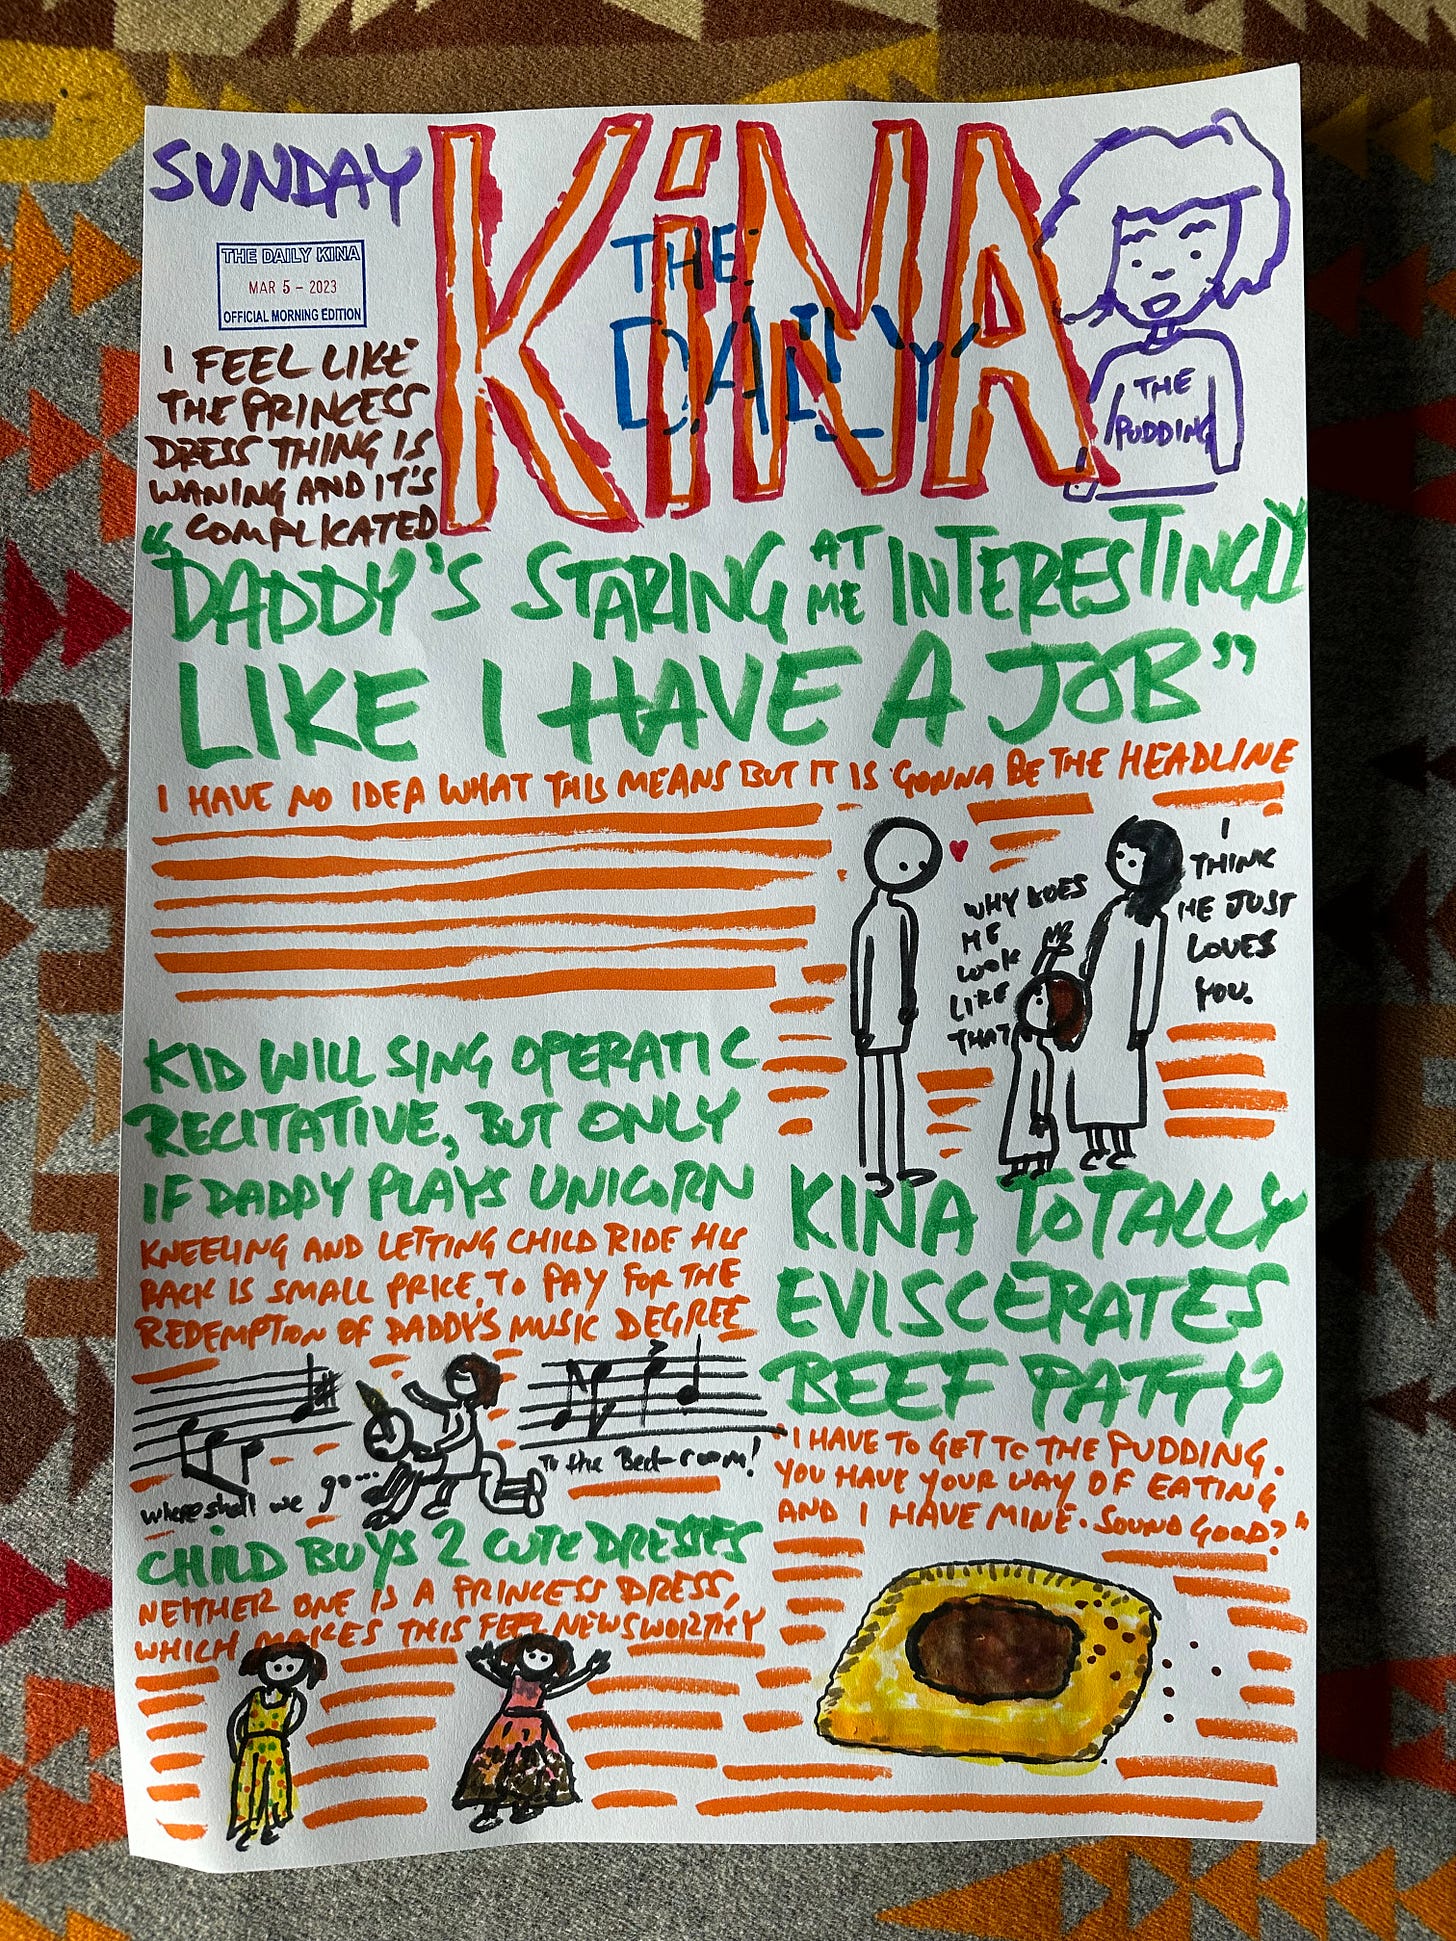 SUNDAY
THE DAILY KINA
MAR 5 - 2023
OFFICIAL MORNING EDITION
KiNA
THE
DAILY
THE
PUDDING
I FEEL LIKE
THE PRINCESS
DRESS THING IS
WANING AND IT'S
COMPLICATED
"DADDY'S STARING AT ME INTERESTINGLY
LIKE I HAVE A JOB"
I HAVE NO IDEA WHAT THIS MEANS BUT IT IS GONNA BE THE HEADLINE
WHY DOES
HE
LOOK
AT ME
LIKE
THAT
I
THINK
HE JUST
LOVES
YOU.
KID WILL SING OPERATIC
RECITATIVE, BUT ONLY
IF DADDY PLAYS UNICORN
KNEELING AND LETTING CHILD RIDE HIS
BACK IS SMALL PRICE TO PAY FOR THE
REDEMPTION OF DADDY'S MUSIC DEGREE
where shall we go...
to the Bed-room!
CHILD BUYS 2 CUTE DRESSES
NEITHER ONE IS A PRINCESS DRESS,
WHICH MAKES THIS FEEL NEWSWORTHY
KINA TOTALLY
EVISCERATES
BEEF PATTY
"I HAVE TO GET TO THE PUDDING.
YOU HAVE YOUR WAY OF EATING
AND I HAVE MINE. SOUND GOOD?"